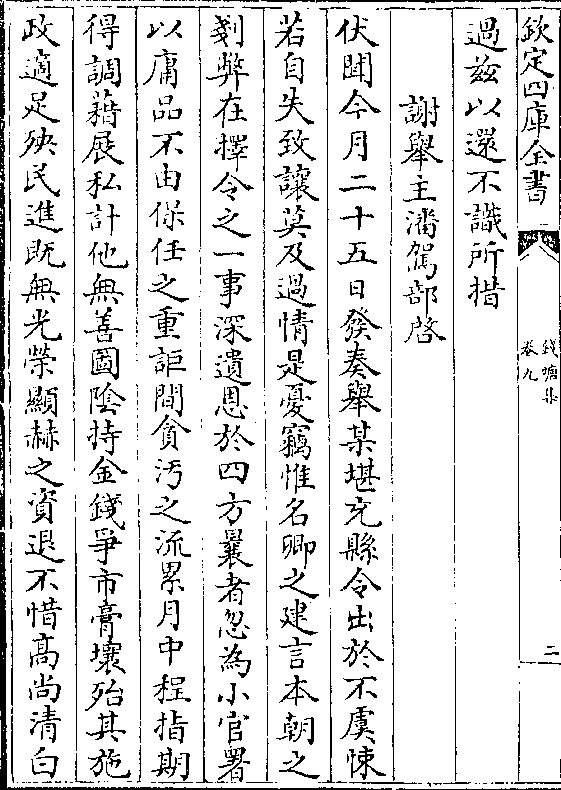 欽定四庫全書
錢塘集
卷九
二
過兹以還不識所措
謝舉主潘駕部啓
伏聞今月二十五日發奏舉某堪充縣令出於不虞悚
若自失致讓莫及過情是憂竊惟名卿之建言本朝之
剗弊在擇令之一事深遺恩於四方曩者忽為小官署
以庸品不由保任之重詎間貪汚之流累月中程指期
得調藉展私計他無善圖陰持金錢爭市膏壤殆其施
政適足殃民進既無光榮顯赫之資退不惜髙尚清白